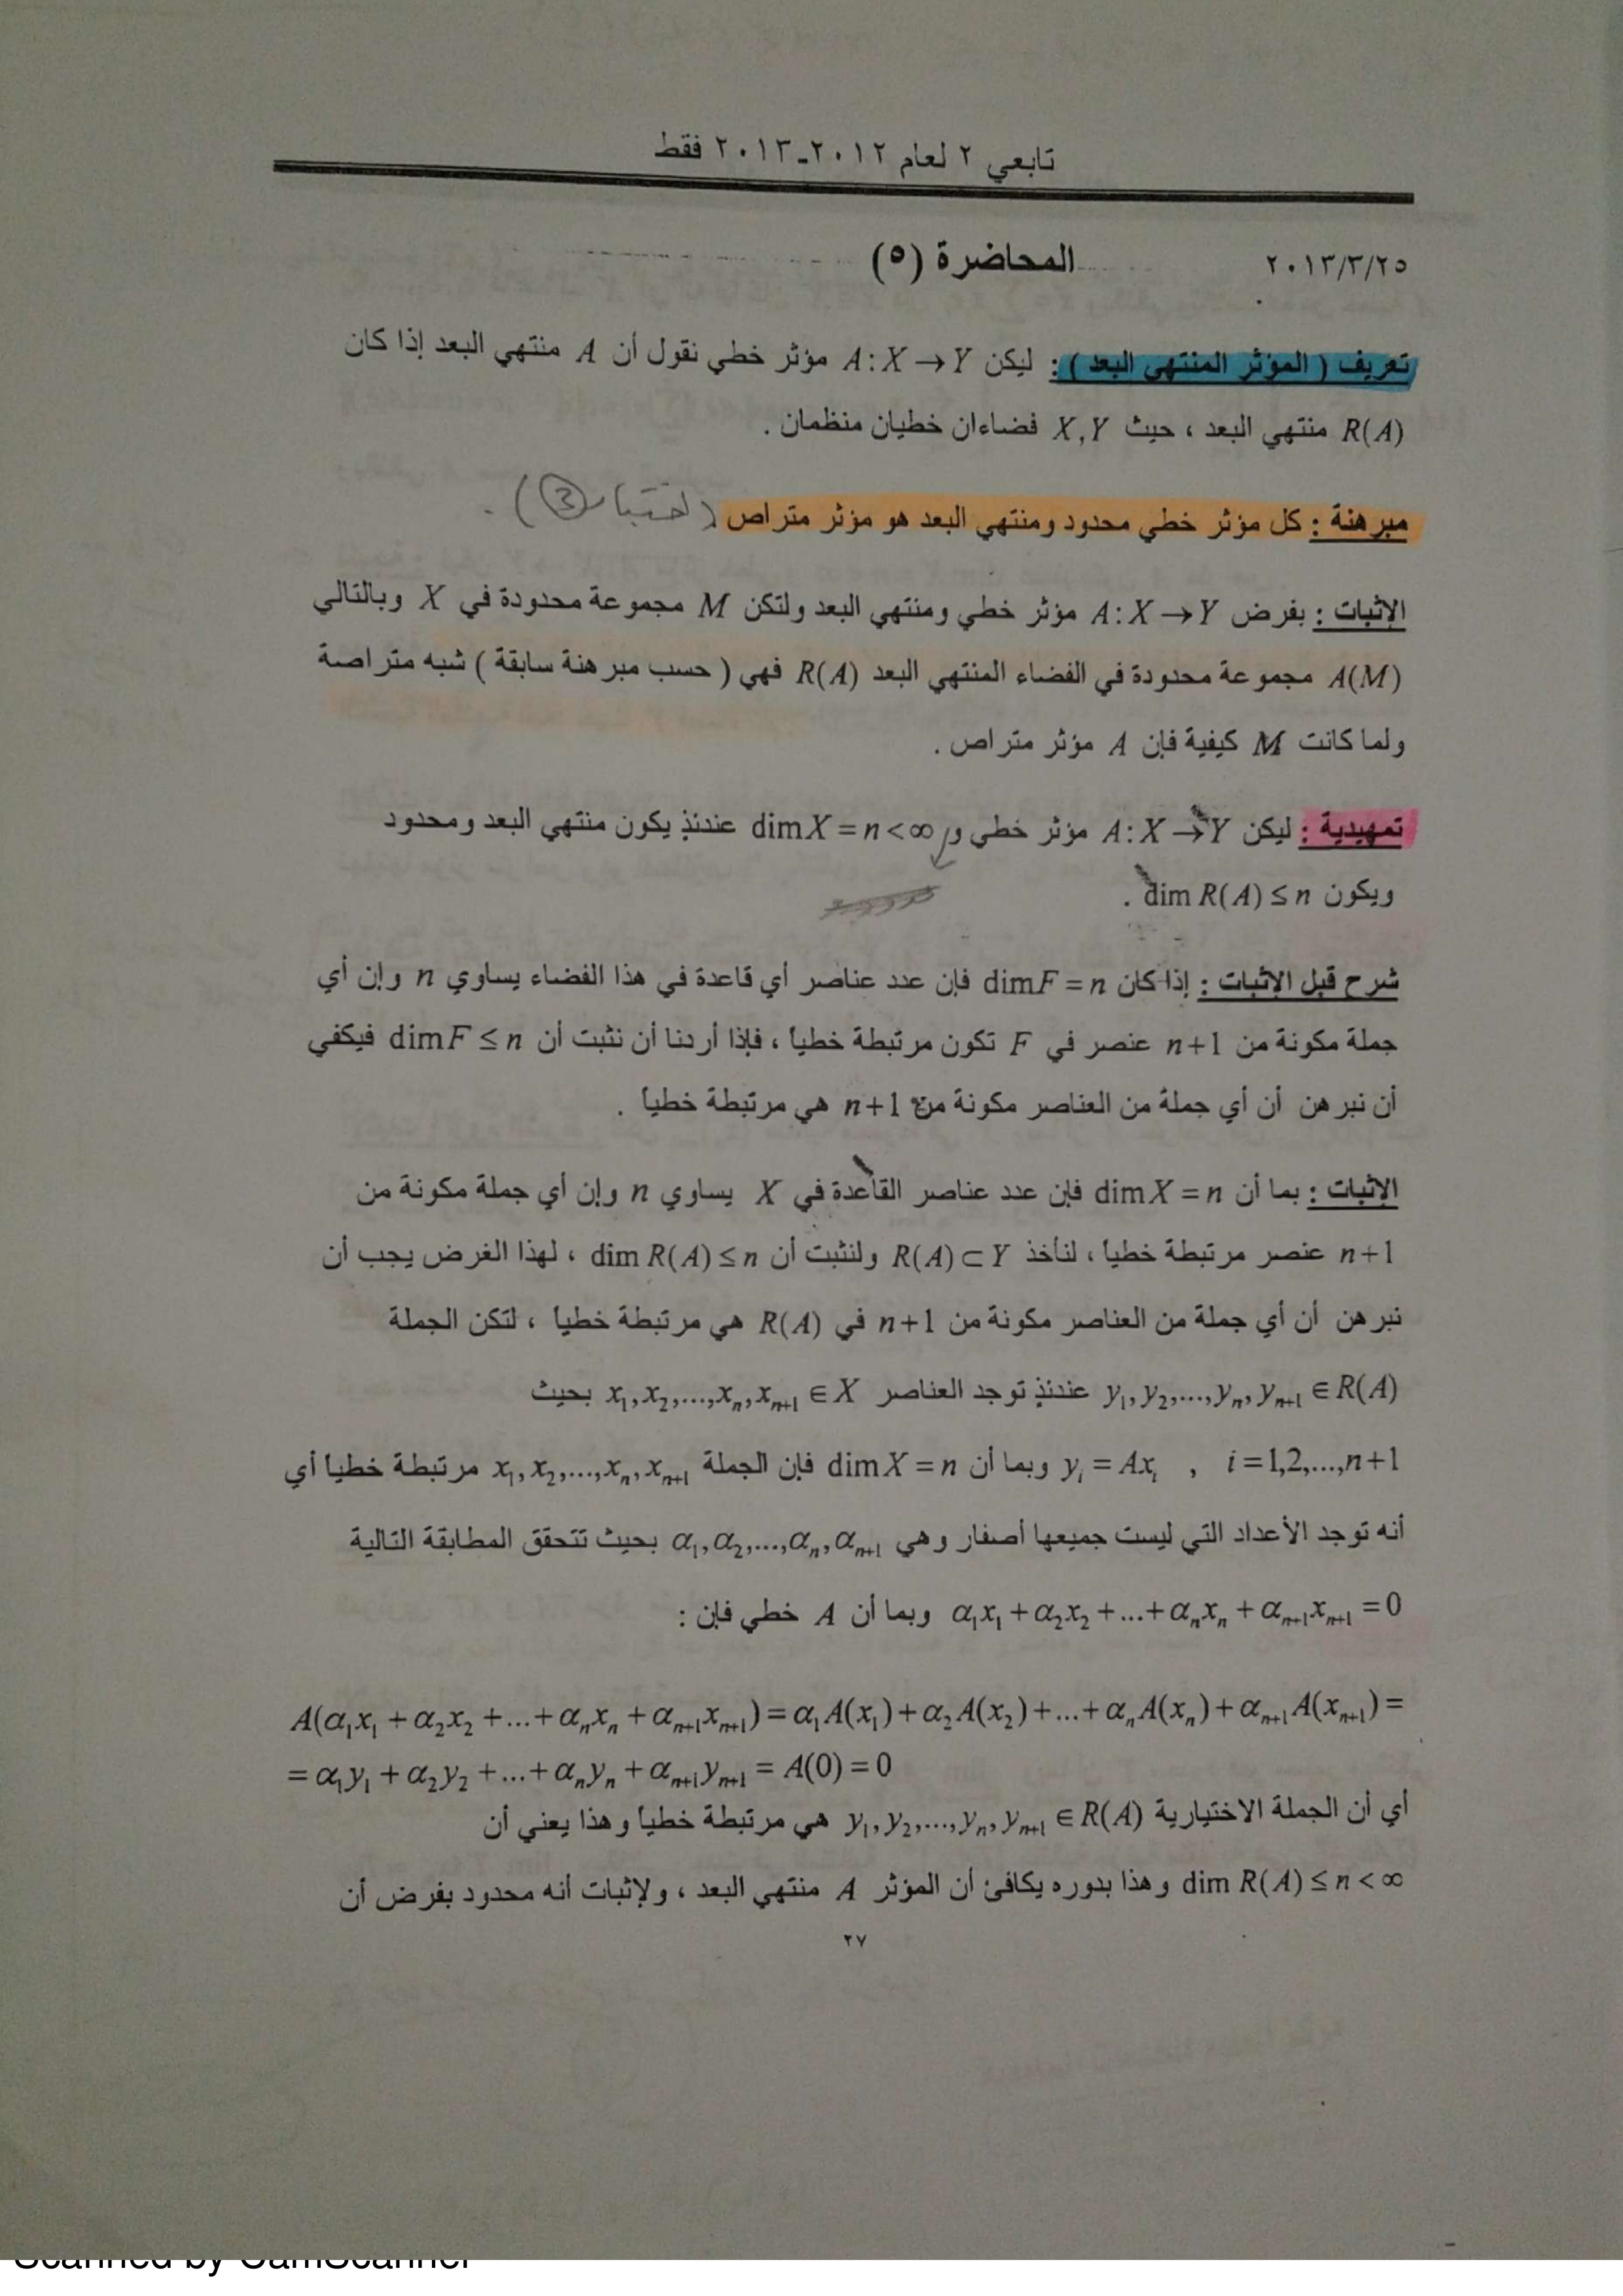 تابعي ٢ لعام ٢٠١٢-٢٠١٣ فقط
٢٠١٣/٣/٢٥ المحاضرة (٥)
تعريف ( المؤثر المنتهي البعد ) : ليكن A : X → Y مؤثر خطي نقول أن A منتهي البعد إذا كان
R(A) منتهي البعد ، حيث X,Y فضاءان خطيان منظمان .
مبرهنة : كل مؤثر خطي محدود ومنتهي البعد هو مؤثر متراص ( اختبار ③ ) .
الإثبات : بفرض A : X → Y مؤثر خطي ومنتهي البعد ولتكن M مجموعة محدودة في X وبالتالي
A(M) مجموعة محدودة في الفضاء المنتهي البعد R(A) فهي ( حسب مبرهنة سابقة ) شبه متراصة
ولما كانت M كيفية فإن A مؤثر متراص .
تمهيدية : ليكن A : X → Y مؤثر خطي و dim X = n < ∞ عندئذٍ يكون منتهي البعد ومحدود
ويكون dim R(A) ≤ n .
شرح قبل الإثبات : إذا كان dim F = n فإن عدد عناصر أي قاعدة في هذا الفضاء يساوي n وإن أي
جملة مكونة من n+1 عنصر في F تكون مرتبطة خطياً ، فإذا أردنا أن نثبت أن dim F ≤ n فيكفي
أن نبرهن أن أي جملة من العناصر مكونة من n+1 هي مرتبطة خطياً .
الإثبات : بما أن dim X = n فإن عدد عناصر القاعدة في X يساوي n وإن أي جملة مكونة من
n+1 عنصر مرتبطة خطياً ، لنأخذ R(A) ⊂ Y ولنثبت أن dim R(A) ≤ n ، لهذا الغرض يجب أن
نبرهن أن أي جملة من العناصر مكونة من n+1 في R(A) هي مرتبطة خطياً ، لتكن الجملة
y₁, y₂,..., yₙ, yₙ₊₁ ∈ R(A) عندئذٍ توجد العناصر x₁, x₂,..., xₙ, xₙ₊₁ ∈ X بحيث
yᵢ = Axᵢ , i = 1,2,...,n+1 وبما أن dim X = n فإن الجملة x₁, x₂,..., xₙ, xₙ₊₁ مرتبطة خطياً أي
أنه توجد الأعداد التي ليست جميعها أصفار وهي α₁, α₂,..., αₙ, αₙ₊₁ بحيث تتحقق المطابقة التالية
α₁x₁ + α₂x₂ + ... + αₙxₙ + αₙ₊₁xₙ₊₁ = 0 وبما أن A خطي فإن :
A(α₁x₁ + α₂x₂ + ... + αₙxₙ + αₙ₊₁xₙ₊₁) = α₁A(x₁) + α₂A(x₂) + ... + αₙA(xₙ) + αₙ₊₁A(xₙ₊₁) =
= α₁y₁ + α₂y₂ + ... + αₙyₙ + αₙ₊₁yₙ₊₁ = A(0) = 0
أي أن الجملة الاختيارية y₁, y₂,..., yₙ, yₙ₊₁ ∈ R(A) هي مرتبطة خطياً وهذا يعني أن
dim R(A) ≤ n < ∞ وهذا بدوره يكافئ أن المؤثر A منتهي البعد ، ولإثبات أنه محدود بفرض أن
٢٧
Scanned by CamScanner